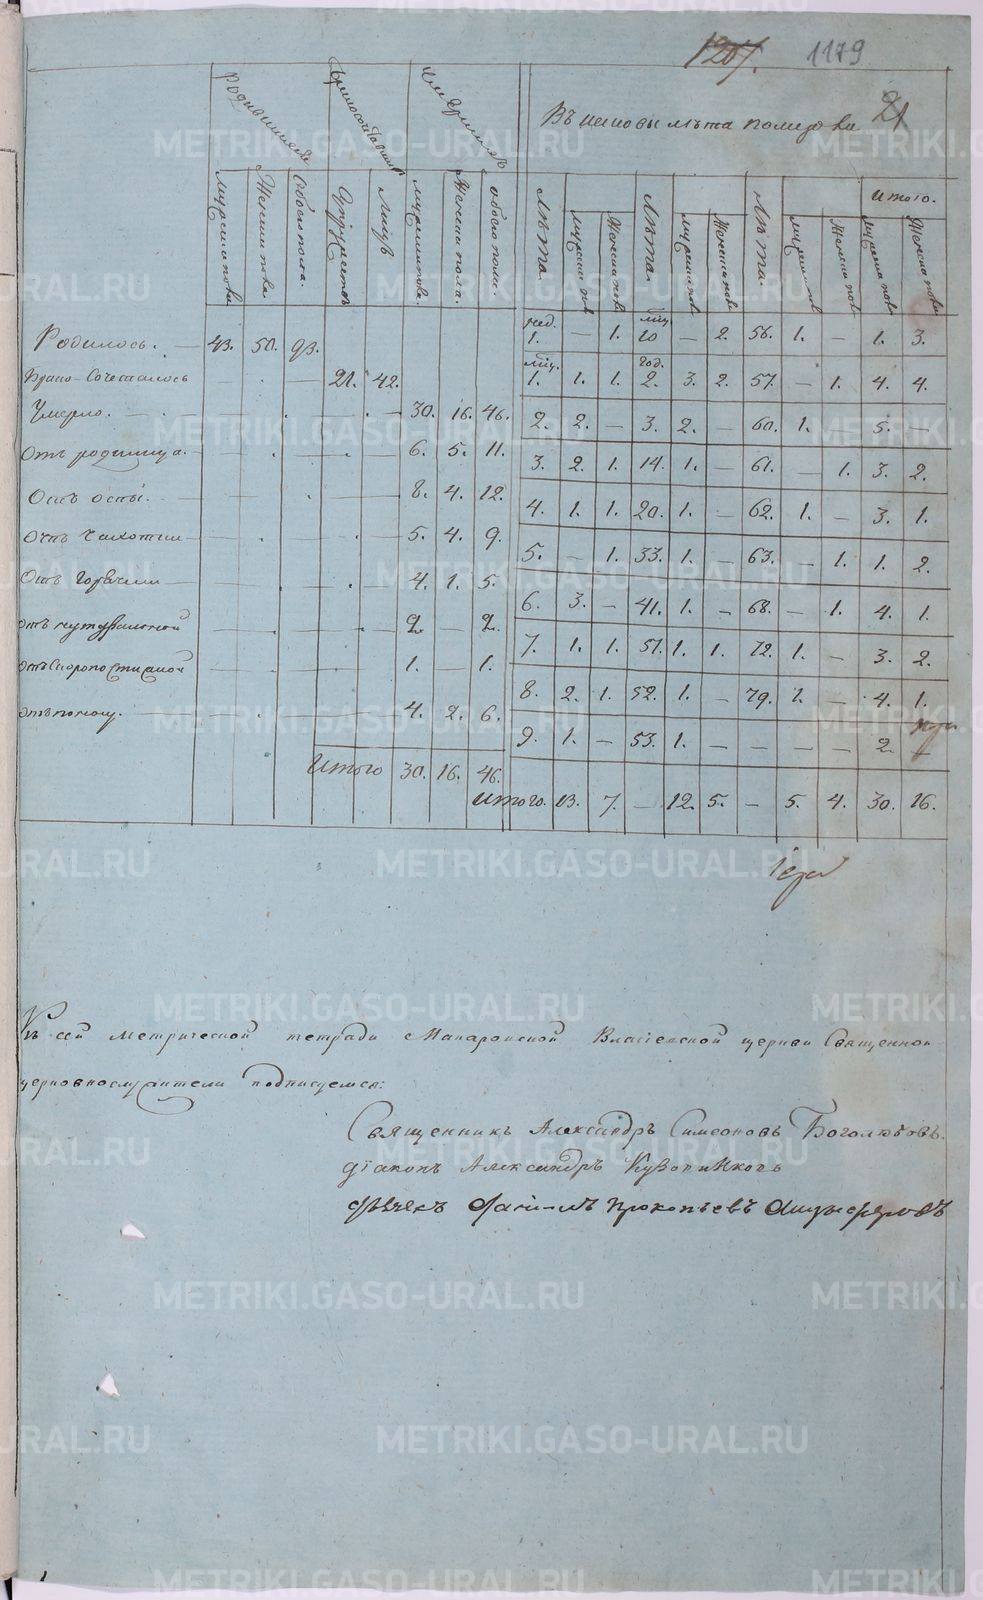 1207. 1179
21
Родившихся
Бракосочетавших
Умерших
Въ каковы лѣта
Итого.
мужеска пола
Женска пола
Обоего пола.
Супружествъ
Лицъ
мужеска пола.
Женска пола.
обоего пола.
Лѣта.
мужеска пол
Женска пол
Лѣта.
мужеска пол
Женска пол
Лѣта.
мужеска пол
Женска пол
мужеска пол
Женска пола
Родилось. 43. 50. 93.
нед. 1. — 1. мѣц. 10 — 2. 56. 1. — 1. 3.
Брако-Сочеталось 21. 42.
мѣц. 1. 1. 1. год. 2. 3. 2. 57. — 1. 4. 4.
Умерло. 30. 16. 46.
2. 2. — 3. 2. — 60. 1. 5. —
Отъ родимца. 6. 5. 11.
3. 2. 1. 14. 1. — 61. — 1. 3. 2.
Отъ оспы. 8. 4. 12.
4. 1. 1. 20. 1. — 62. 1. — 3. 1.
Отъ чахотки 5. 4. 9.
5. — 1. 33. 1. — 63. — 1. 1. 2.
Отъ Горячки 4. 1. 5.
6. 3. — 41. 1. — 68. — 1. 4. 1.
отъ натуральной 2. — 2.
7. 1. 1. 51. 1. 1. 72. 1. — 3. 2.
отъ Скоропостижной 1. — 1.
8. 2. 1. 52. 1. — 79. 1. — 4. 1.
отъ поносу. 4. 2. 6.
9. 1. — 53. 1. — — — — 2. —
Итого 30. 16. 46.
Итого. 13. 7. — 12. 5. — 5. 4. 30. 16.
Къ сей метрической тетради Макаровской Власіевской церкви Священно
церковнослужители подписуемся:
Священникъ Александръ Симеоновъ Боголюбовъ.
діаконъ Александръ
Прокопьевъ
METRIKI.GASO-URAL.RU